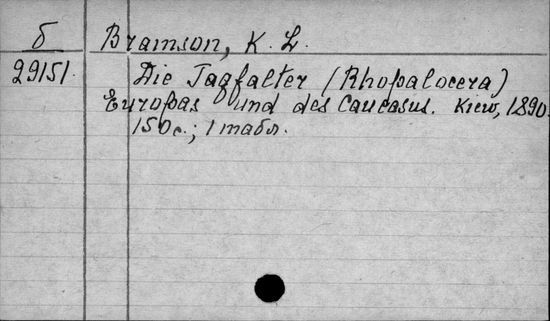 б
29151.
Bramson, K. L.
Die Tagfalter (Rhopalocera)
Europas und des Caucasus. Kiew, 1890.
150с.; 1 табл.